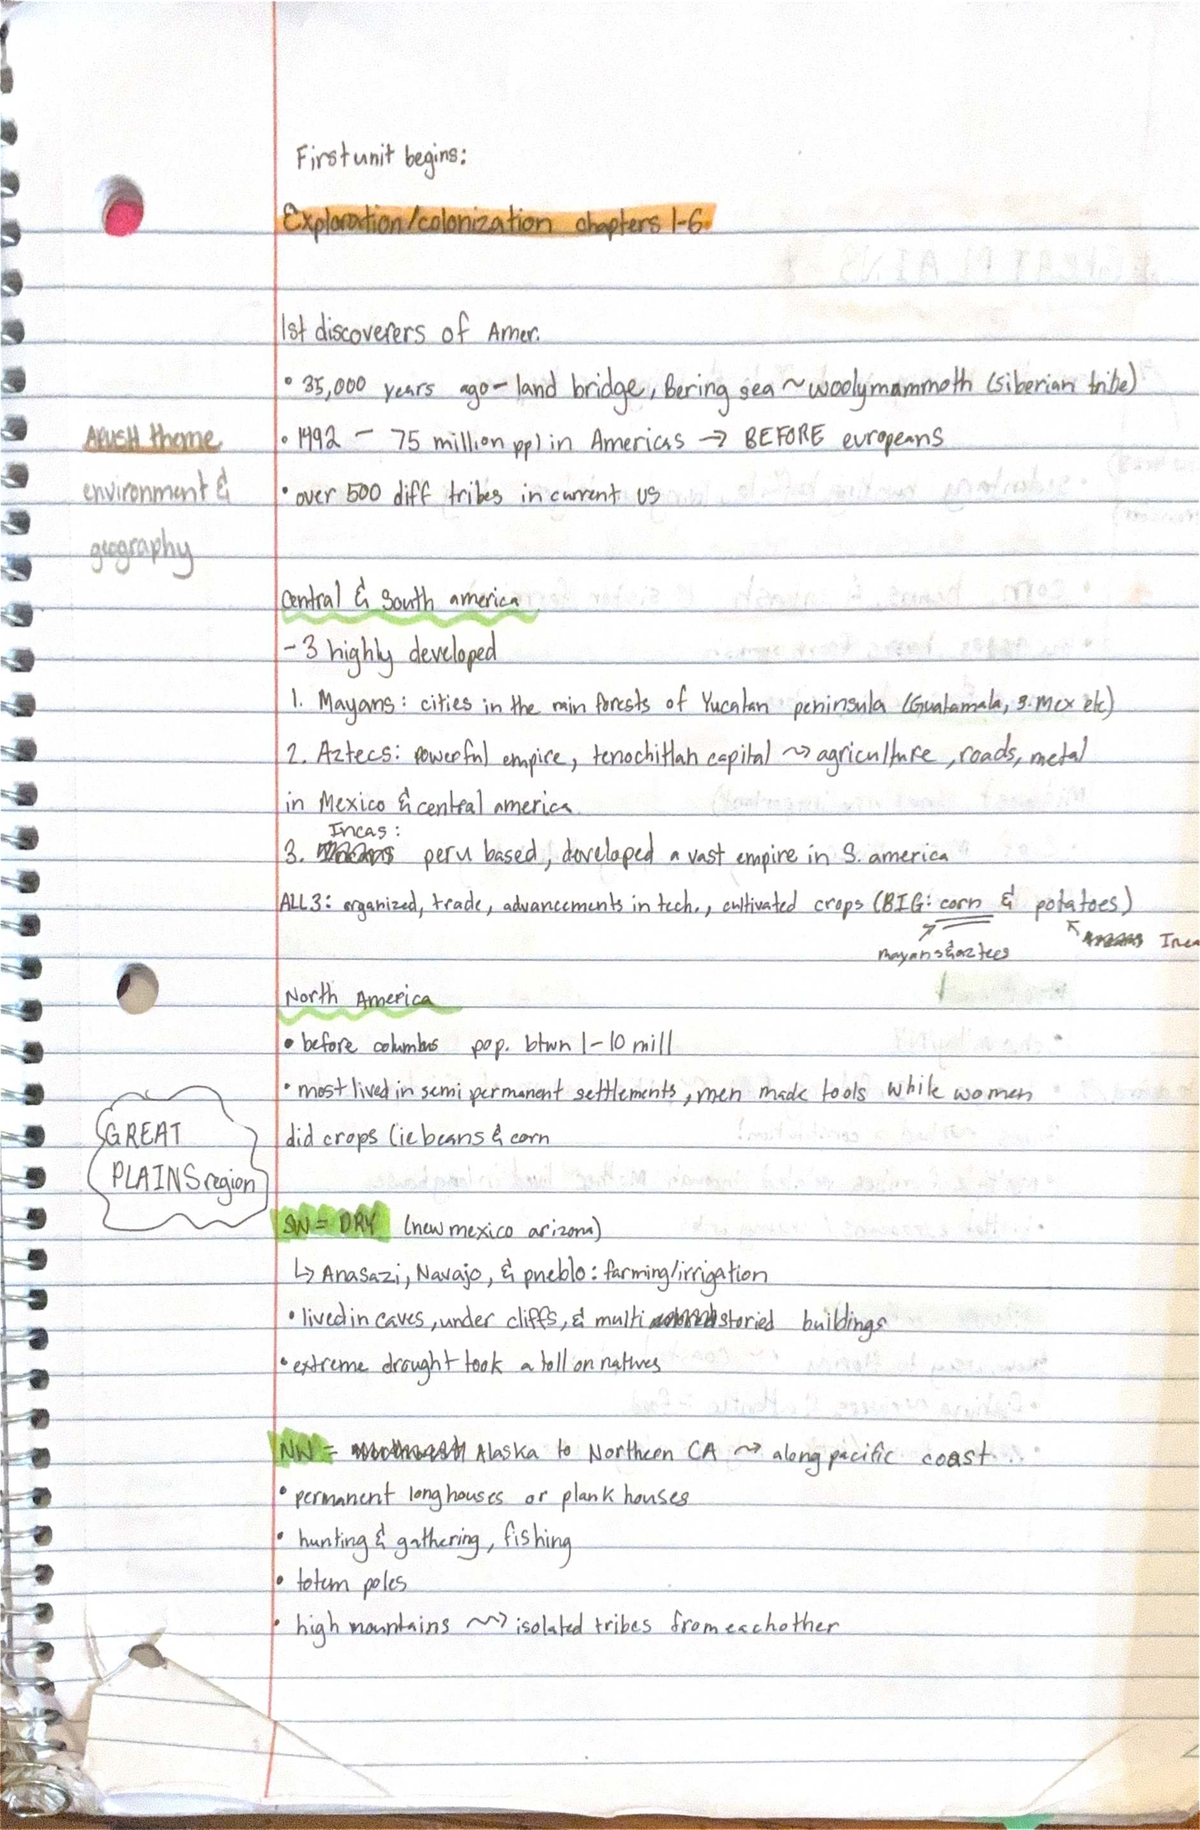 First unit begins:
Exploration/colonization chapters 1-6
1st discoverers of Amer.
• 35,000 years ago - land bridge, Bering sea ~ woolymammoth (siberian tribe)
APUSH theme
environment &
geography
• 1492 - 75 million ppl in Americas → BEFORE europeans
• over 500 diff tribes in current US
Central & South america
- 3 highly developed
1. Mayans: cities in the rain forests of Yucatan peninsula (Guatamala, S. Mex etc)
2. Aztecs: powerful empire, tenochitlan capital ~> agriculture, roads, metal
in Mexico & central america
Incas:
3. peru based, developed a vast empire in S. america
ALL 3: organized, trade, advancements in tech., cultivated crops (BIG: corn & potatoes)
mayans & aztecs
Inca
North America
• before columbus pop. btwn 1-10 mill
• most lived in semi permanent settlements, men made tools while women
did crops (ie beans & corn
GREAT
PLAINS region
SW = DRY (new mexico arizona)
↳ Anasazi, Navajo, & pueblo: farming/irrigation
• lived in caves, under cliffs, & multi storied buildings
• extreme drought took a toll on natives
NW = Alaska to Northern CA ~> along pacific coast.
• permanent longhouses or plank houses
• hunting & gathering, fishing
• totem poles
• high mountains ~> isolated tribes from eachother